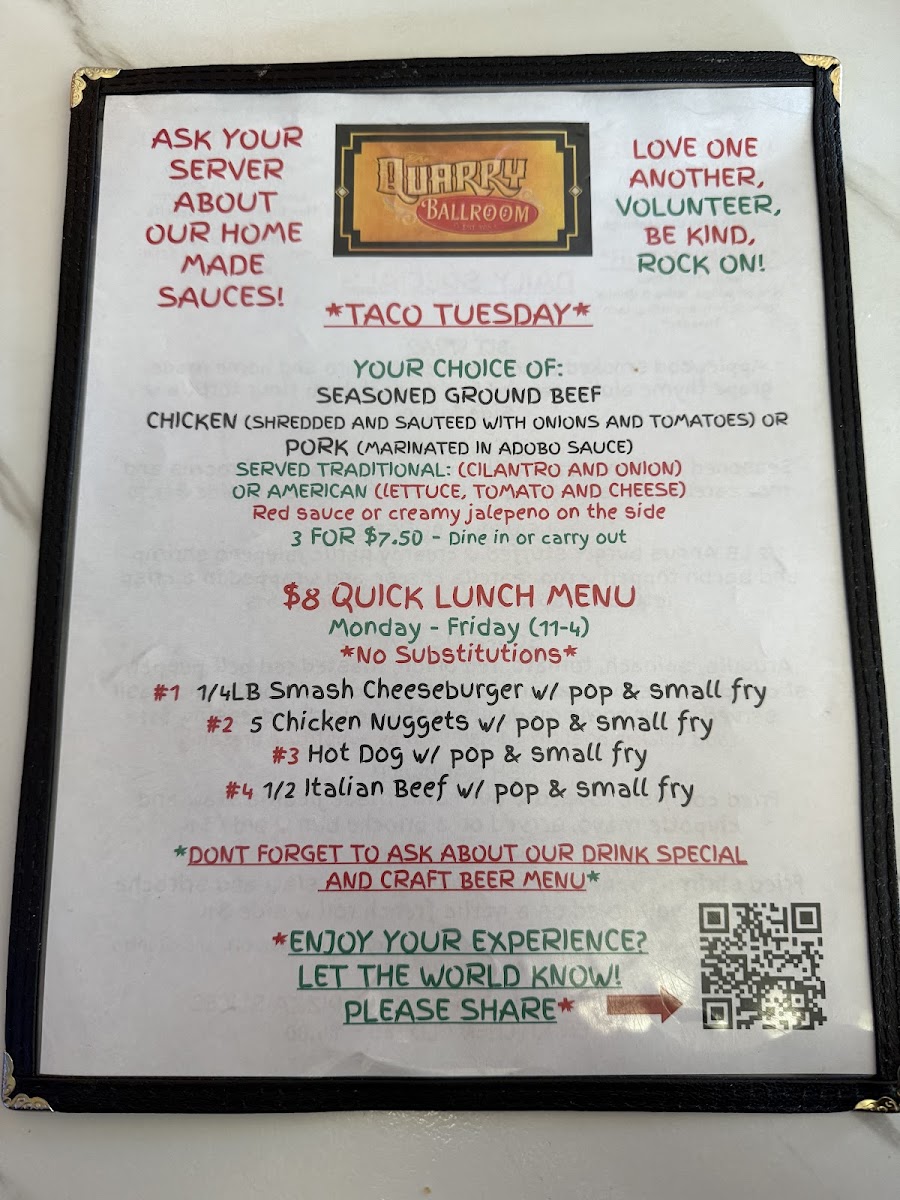 ASK YOUR
SERVER
ABOUT
OUR HOME
MADE
SAUCES!
QUARRY
BALLROOM
LOVE ONE
ANOTHER,
VOLUNTEER,
BE KIND,
ROCK ON!
*TACO TUESDAY*
YOUR CHOICE OF:
SEASONED GROUND BEEF
CHICKEN (SHREDDED AND SAUTEED WITH ONIONS AND TOMATOES) OR
PORK (MARINATED IN ADOBO SAUCE)
SERVED TRADITIONAL: (CILANTRO AND ONION)
OR AMERICAN (LETTUCE, TOMATO AND CHEESE)
Red sauce or creamy jalepeno on the side
3 FOR $7.50 - Dine in or carry out
$8 QUICK LUNCH MENU
Monday - Friday (11-4)
*No Substitutions*
#1 1/4LB Smash Cheeseburger w/ pop & small fry
#2 5 Chicken Nuggets w/ pop & small fry
#3 Hot Dog w/ pop & small fry
#4 1/2 Italian Beef w/ pop & small fry
*DONT FORGET TO ASK ABOUT OUR DRINK SPECIAL
AND CRAFT BEER MENU*
*ENJOY YOUR EXPERIENCE?
LET THE WORLD KNOW!
PLEASE SHARE*